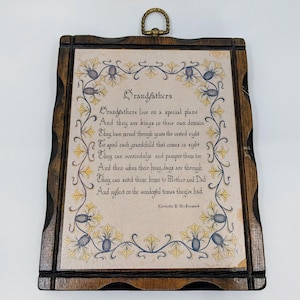 Grandfathers
Grandfathers live on a special plane
And they are kings in their own domain
They have earned through years the vested right
To spoil each grandchild that comes in sight
They can overindulge and pamper them too
And then when their busy days are through
They can send them home to Mother and Dad
And reflect on the wonderful times they've had.